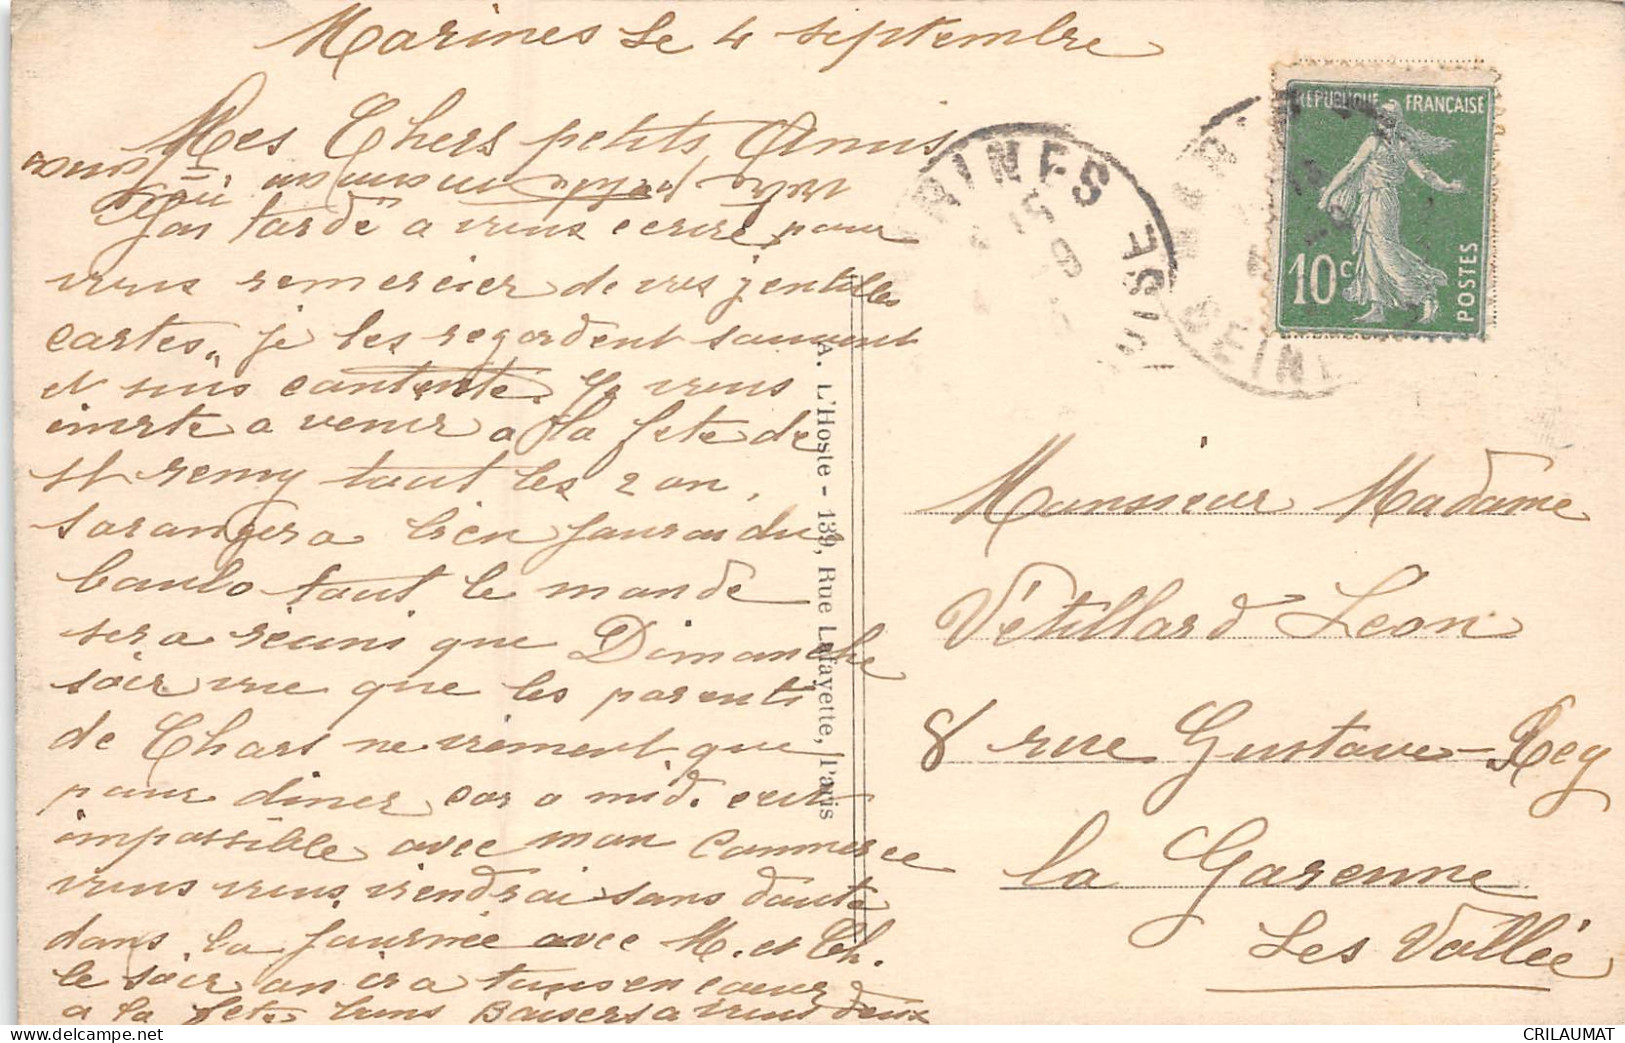 Marines Le 4 septembre
Mes Chers petits Amis
J'ai tardé a vous ecrire pour
vous remercier de vos jentilles
cartes, je les regardent sauvent
et suis cantente. Je vous
invite a venir a la fete de
St remy tout les 2 an,
sarangera bien
tout le monde
sera réuni que Dimanche
soir vue que les parents
de Chars ne viennent que
pour diner car a mid. cest
impossible avec mon Commerce
vous vous viendrai sans doute
dans la journée avec M. et Ch.
le soir on ira tous en cœur
a la fete bons Baisers a vous deux
A. L'Hoste - 139, Rue Lafayette, Paris
MARINES
OISE
SEINE
RÉPUBLIQUE FRANÇAISE
10c
POSTES
Monsieur Madame
Vétillard Leon
8 rue Gustave-Rey
la Garenne
Les Vallée
CRILAUMAT